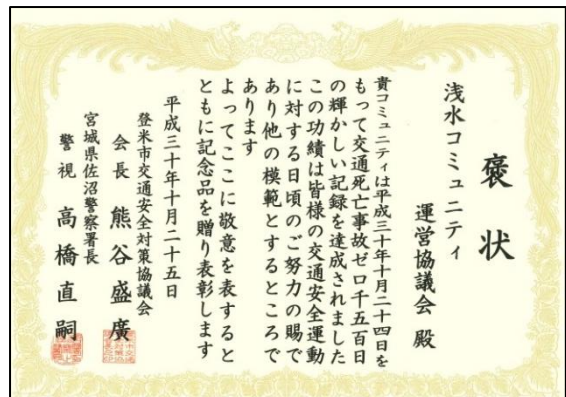 褒状
浅水コミュニティ
運営協議会 殿
貴コミュニティは平成三十年十月二十四日を
もって交通死亡事故ゼロ千五百日
の輝かしい記録を達成されました
この功績は皆様の交通安全運動
に対する日頃のご努力の賜で
あり他の模範とするところで
あります
よってここに敬意を表すると
ともに記念品を贈り表彰します
平成三十年十月二十五日
登米市交通安全対策協議会
会長 熊谷盛廣
宮城県佐沼警察署長
警視 高橋直嗣